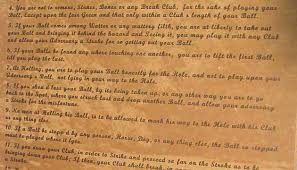 4. You are not to remove, Stones, Bones or any Break Club, for the sake of playing your
Ball, Except upon the fair Green and that only within a Club's length of your Ball.
5. If your Ball comes among Water or any watery filth, you are at liberty to take out
your Ball and bringing it behind the hazard and Teeing it, you may play it with any Club
and allow your Adversary a Stroke for so getting out your Ball.
6. If your Balls be found any where touching one another, you are to lift the first Ball,
till you play the last.
7. At Holling, you are to play your Ball honestly for the Hole, and not to play upon your
Adversary's Ball, not lying in your way to the Hole.
8. If you shou'd lose your Ball, by its being taken up, or any other way you are to go
back to the Spot, where you struck last and drop another Ball, and allow your adversary
a Stroke for the misfortune.
9. No man at Holling his Ball, is to be allowed to mark his way to the Hole with his Club
or any thing else.
10. If a Ball be stopp'd by any person, Horse, Dog, or any thing else, the Ball so stopped
must be played where it lyes.
11. If you draw your Club, in order to Strike and proceed so far on the Stroke as to be
bringing down your Club; If then, your Club shall break in
a Stroke.